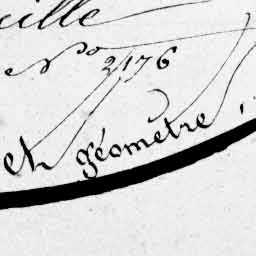 uille
N° 2176
et géomètre,